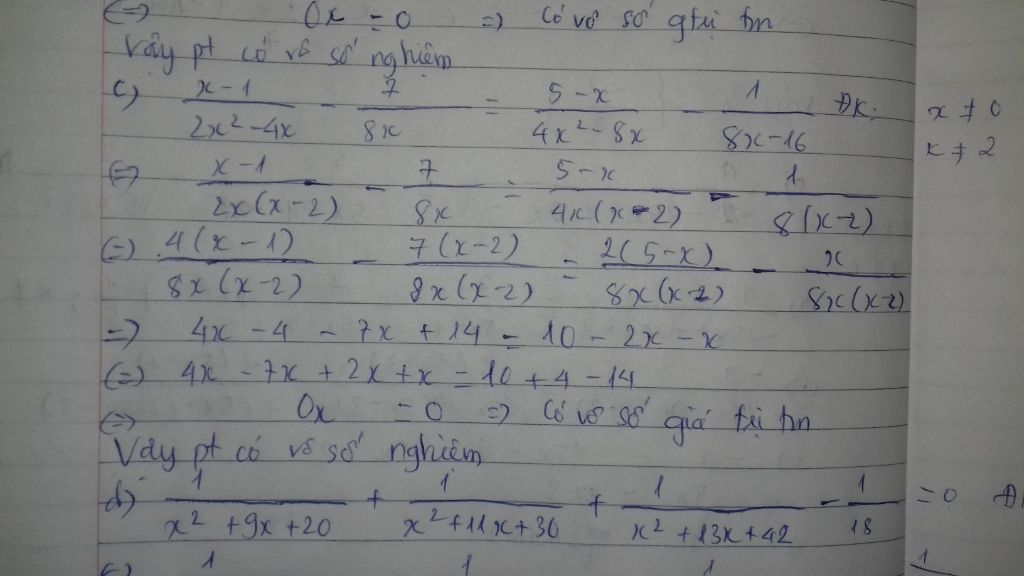 (=) 0x = 0 => Có vô số gtrị tm
Vậy pt có vô số nghiệm
c) (x-1)/(2x²-4x) - 7/(8x) = (5-x)/(4x²-8x) - 1/(8x-16) ĐK: x ≠ 0
x ≠ 2
(=) (x-1)/(2x(x-2)) - 7/(8x) = (5-x)/(4x(x-2)) - 1/(8(x-2))
(=) 4(x-1)/(8x(x-2)) - 7(x-2)/(8x(x-2)) = 2(5-x)/(8x(x-2)) - x/(8x(x-2))
=) 4x - 4 - 7x + 14 = 10 - 2x - x
(=) 4x - 7x + 2x + x = 10 + 4 - 14
(=) 0x = 0 => Có vô số giá trị tm
Vậy pt có vô số nghiệm
d) 1/(x²+9x+20) + 1/(x²+11x+30) + 1/(x²+13x+42) - 1/18 = 0
1 1 1 1